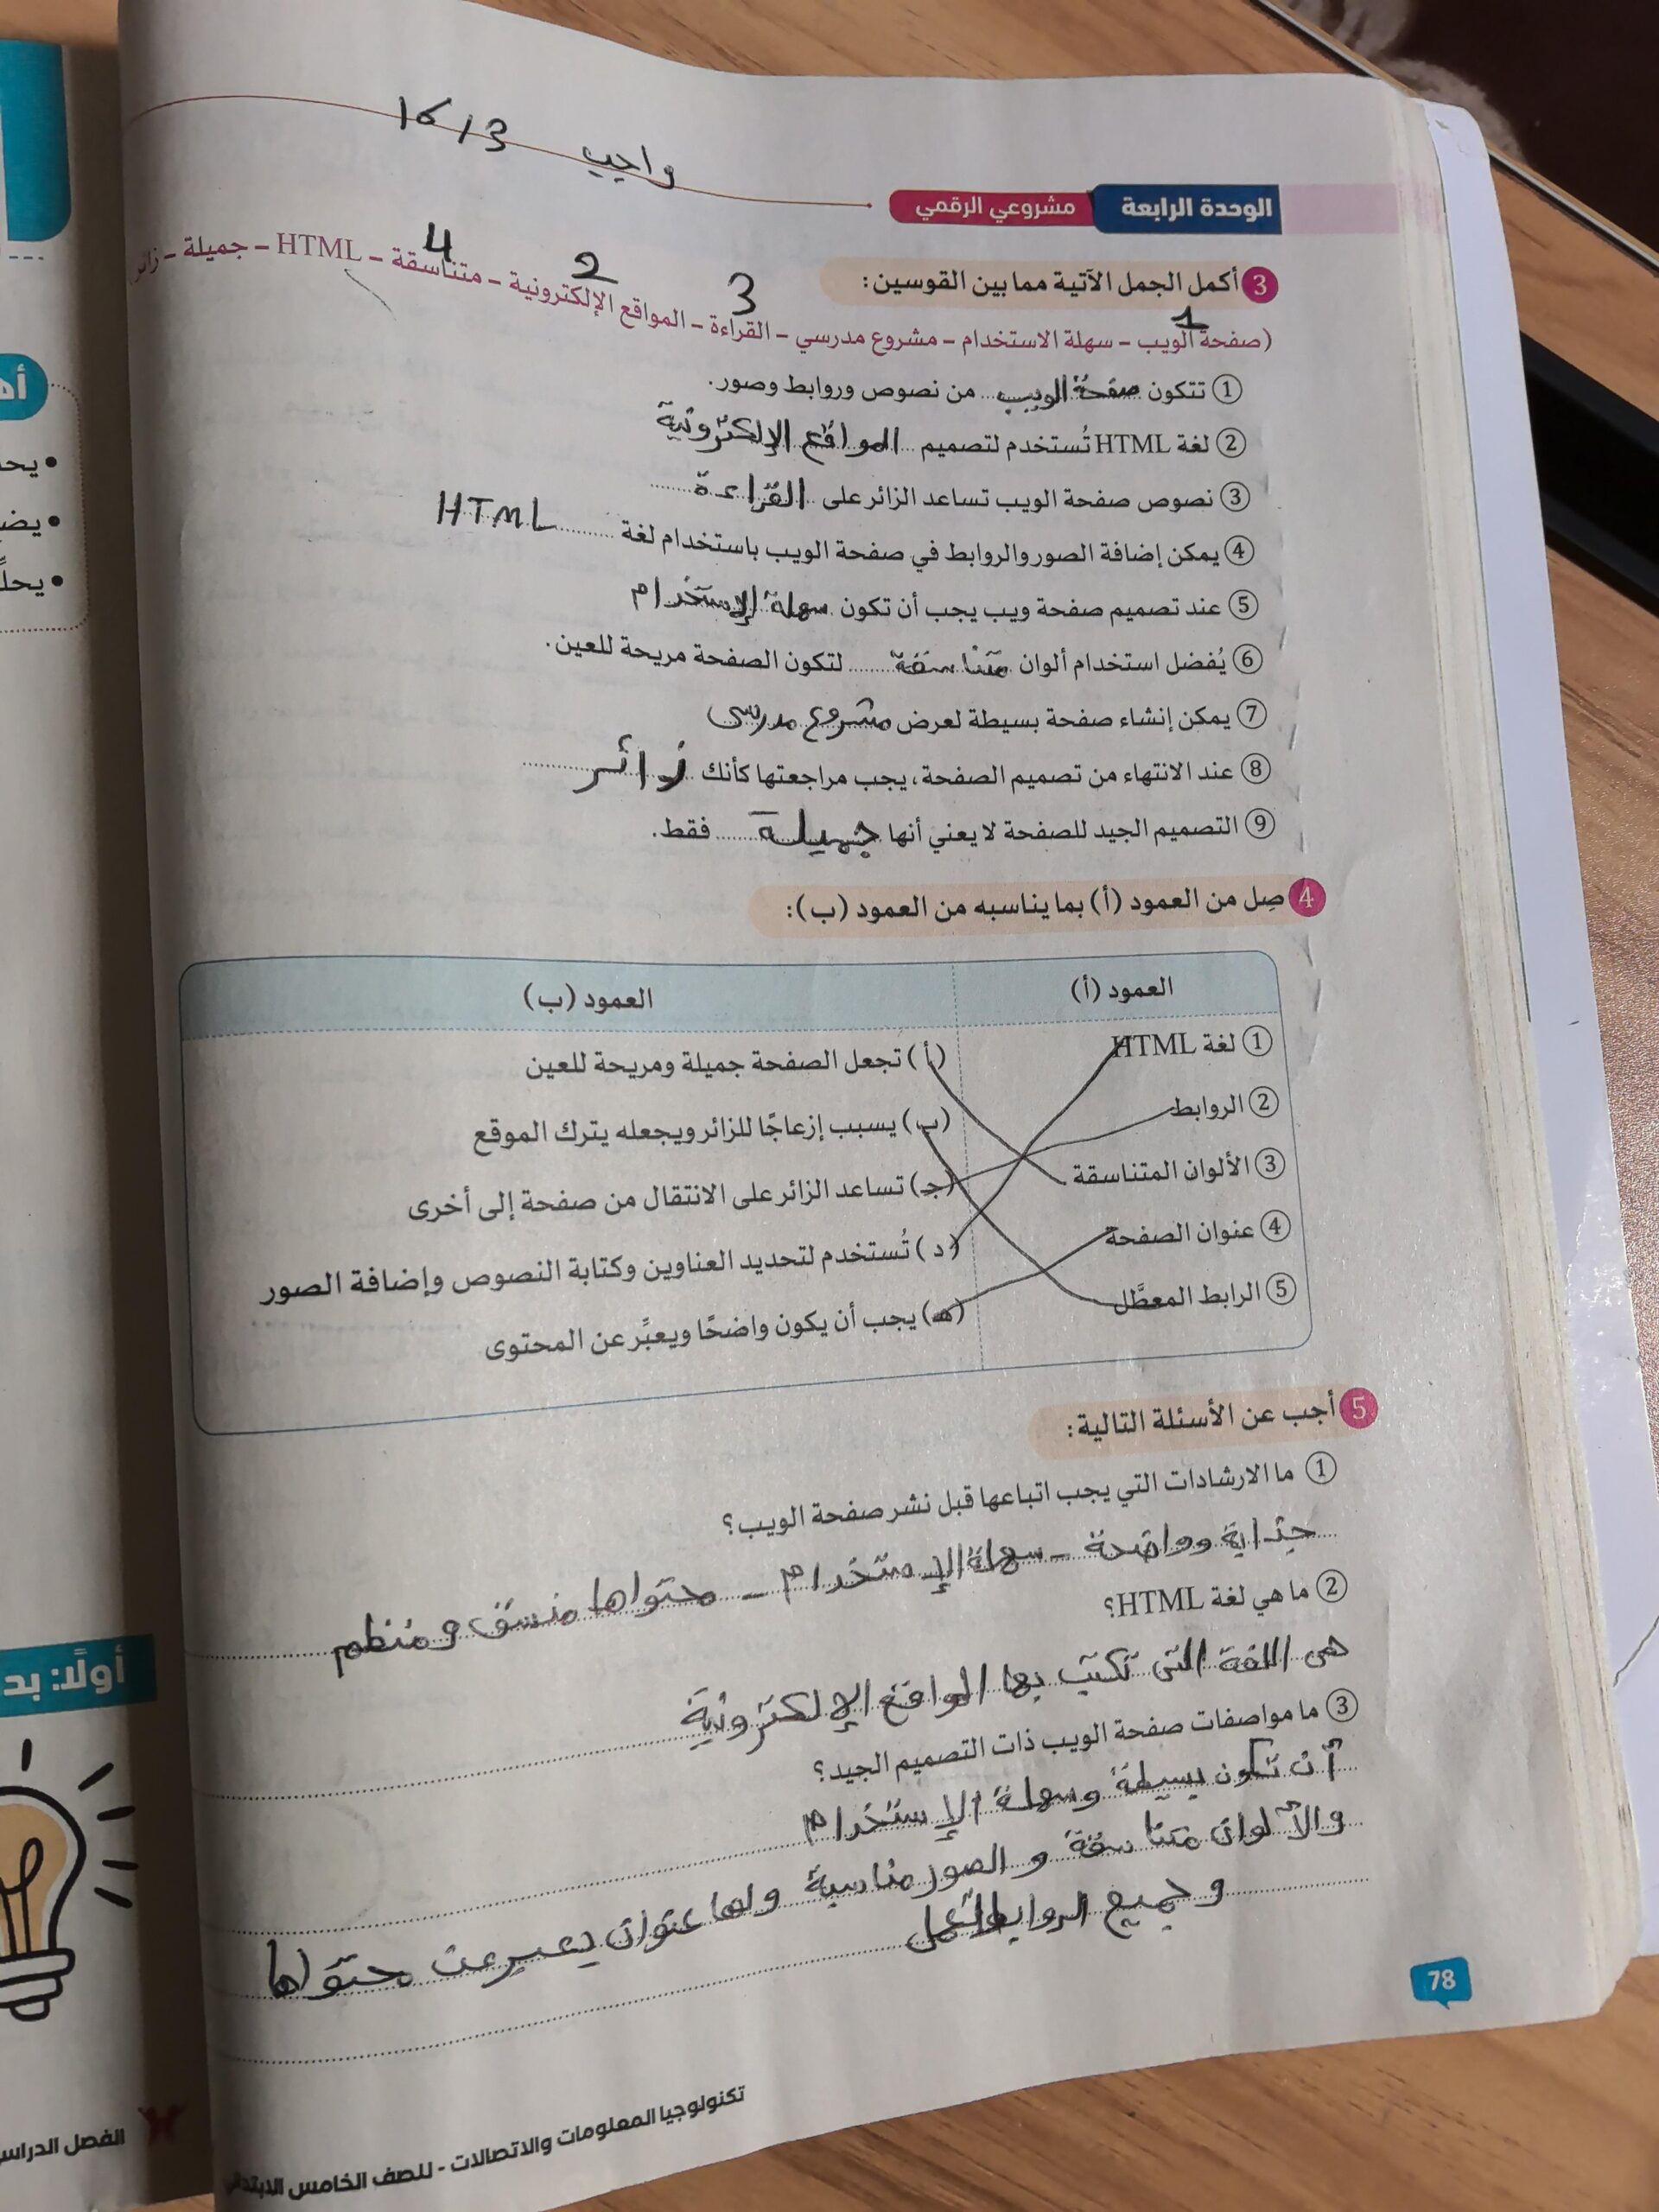 واجب 3/16
الوحدة الرابعة مشروعي الرقمي
3 أكمل الجمل الآتية مما بين القوسين:
1 3 2 4
(صفحة الويب – سهلة الاستخدام – مشروع مدرسي – القراءة – المواقع الإلكترونية – متناسقة – HTML – جميلة – زائر
① تتكون صفحة الويب من نصوص وروابط وصور.
② لغة HTML تُستخدم لتصميم المواقع الإلكترونية
③ نصوص صفحة الويب تساعد الزائر على القراءة
④ يمكن إضافة الصور والروابط في صفحة الويب باستخدام لغة HTML
⑤ عند تصميم صفحة ويب يجب أن تكون سهلة الإستخدام
⑥ يُفضل استخدام ألوان متناسقة لتكون الصفحة مريحة للعين.
⑦ يمكن إنشاء صفحة بسيطة لعرض مشروع مدرسى
⑧ عند الانتهاء من تصميم الصفحة، يجب مراجعتها كأنك زائر
⑨ التصميم الجيد للصفحة لا يعني أنها جميلة فقط.
4 صِل من العمود (أ) بما يناسبه من العمود (ب):
العمود (أ) العمود (ب)
① لغة HTML (أ) تجعل الصفحة جميلة ومريحة للعين
② الروابط (ب) يسبب إزعاجًا للزائر ويجعله يترك الموقع
③ الألوان المتناسقة (جـ) تساعد الزائر على الانتقال من صفحة إلى أخرى
④ عنوان الصفحة (د) تُستخدم لتحديد العناوين وكتابة النصوص وإضافة الصور
⑤ الرابط المعطَّل (هـ) يجب أن يكون واضحًا ويعبِّر عن المحتوى
5 أجب عن الأسئلة التالية:
① ما الارشادات التي يجب اتباعها قبل نشر صفحة الويب؟
جذابة وواضحة – سهلة الإستخدام – محتواها منسق ومنظم
② ما هي لغة HTML؟
هى اللغة التى تكتب بها المواقع الإلكترونية
③ ما مواصفات صفحة الويب ذات التصميم الجيد؟
أن تكون بسيطة وسهلة الإستخدام
والألوان متناسقة و الصور مناسبة ولها عنوان يعبر عن محتواها
وجميع الروابط تعمل
78
تكنولوجيا المعلومات والاتصالات - للصف الخامس الابتدائي
أولًا: بد
الفصل الدراسي
• يحد
• يض
• يحلّ
أه